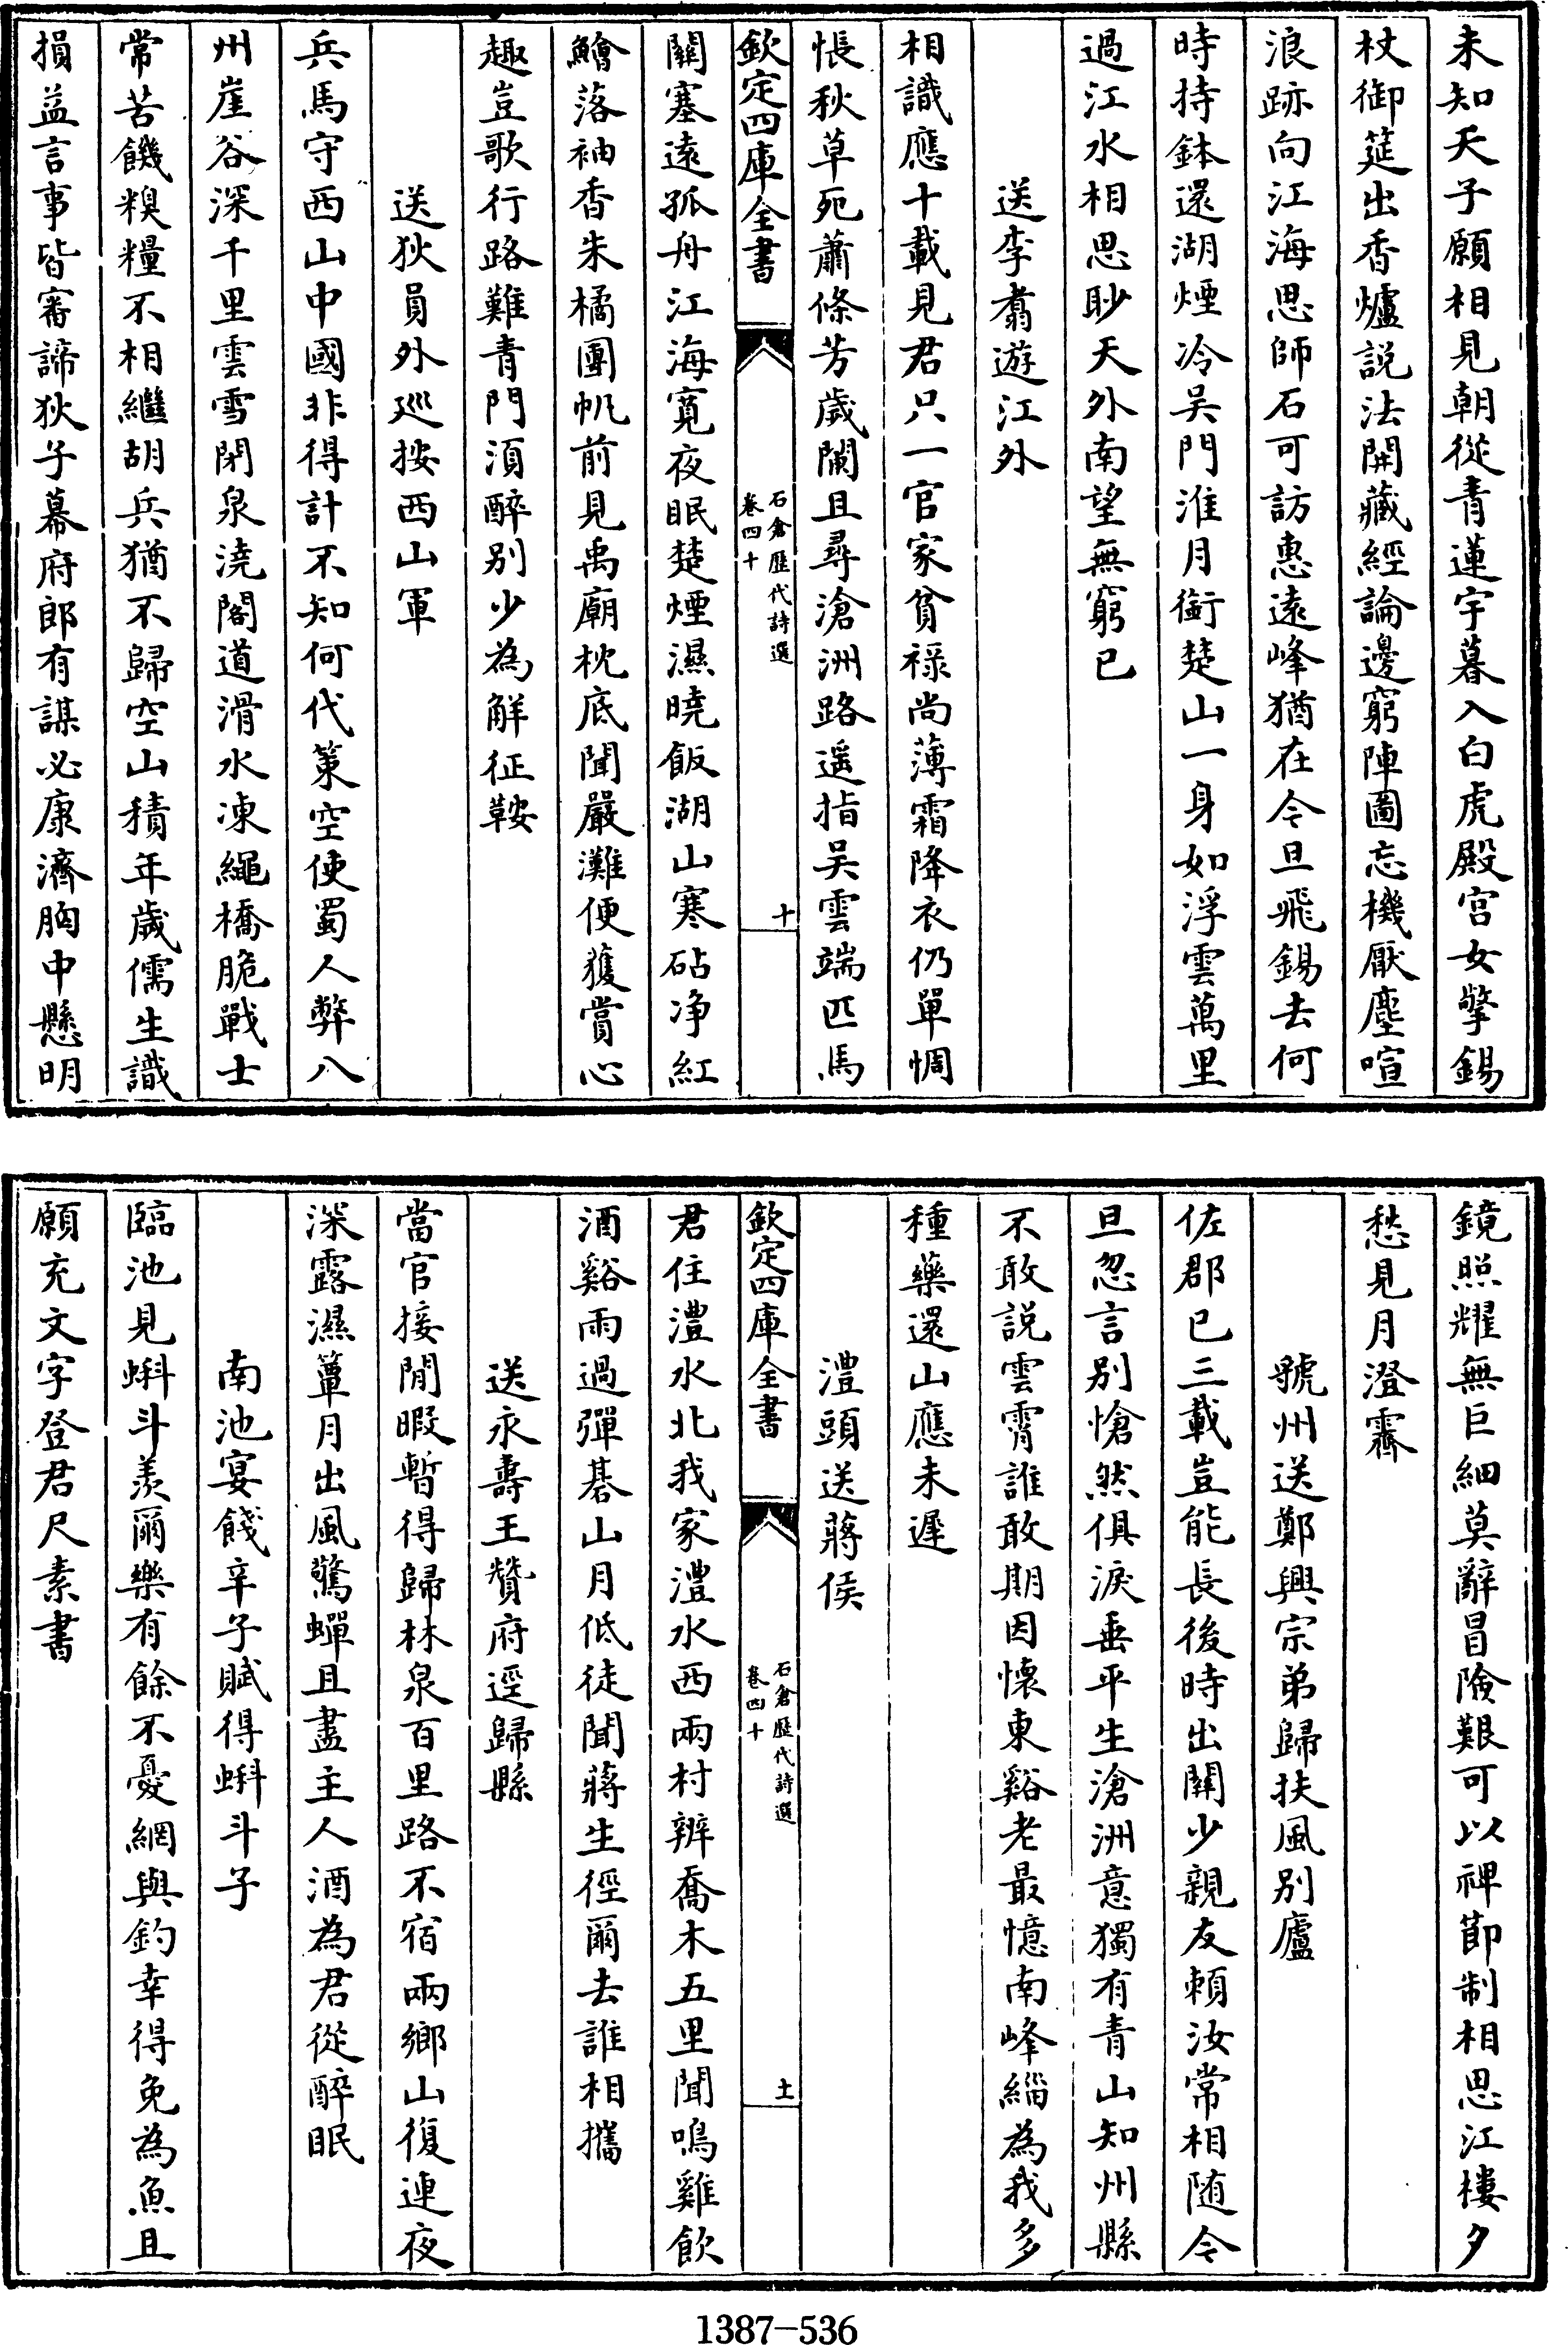 未知天子願相見朝從青蓮宇暮入白虎殿宫女擎錫
杖御筵出香爐説法開藏經論邊窮陣圖忘機厭塵喧
浪跡向江海思師石可訪惠遠峰猶在今旦飛錫去何
時持鉢還湖煙冷吴門淮月銜楚山一身如浮雲萬里
過江水相思眇天外南望無窮已
送李翥遊江外
相識應十載見君只一官家貧禄尚薄霜降衣仍單惆
悵秋草死蕭條芳歲闌且尋滄洲路遥指吴雲端匹馬
欽定四庫全書
石倉歷代詩選
卷四十
十
關塞遠孤舟江海寛夜眠楚煙濕曉飯湖山寒砧净紅
鱠落袖香朱橘團帆前見禹廟枕底聞嚴灘便獲賞心
趣豈歌行路難青門湏醉别少為解征鞍
送狄員外巡按西山軍
兵馬守西山中國非得計不知何代策空使蜀人弊八
州崖谷深千里雲雪閉泉澆閣道滑水凍繩橋脆戰士
常苦饑糗糧不相繼胡兵猶不歸空山積年歲儒生識
損益言事皆審諦狄子幕府郎有謀必康濟胸中懸明
鏡照耀無巨細莫辭冒險艱可以禆節制相思江樓夕
愁見月澄霽
虢州送鄭興宗弟歸扶風别廬
佐郡已三載豈能長後時出關少親友賴汝常相随今
旦忽言别愴然俱淚垂平生滄洲意獨有青山知州縣
不敢説雲霄誰敢期因懷東谿老最憶南峰緇為我多
種藥還山應未遲
澧頭送蔣侯
欽定四庫全書
石倉歷代詩選
卷四十
土
君住澧水北我家澧水西兩村辨喬木五里聞鳴雞飲
酒谿雨過彈棊山月低徒聞蔣生徑爾去誰相攜
送永壽王贊府逕歸縣
當官接閒暇暫得歸林泉百里路不宿兩鄉山復連夜
深露濕簟月出風驚蟬且盡主人酒為君從醉眠
南池宴餞辛子賦得蝌斗子
臨池見蝌斗羨爾樂有餘不憂網與釣幸得免為魚且
願充文字登君尺素書
1387-536